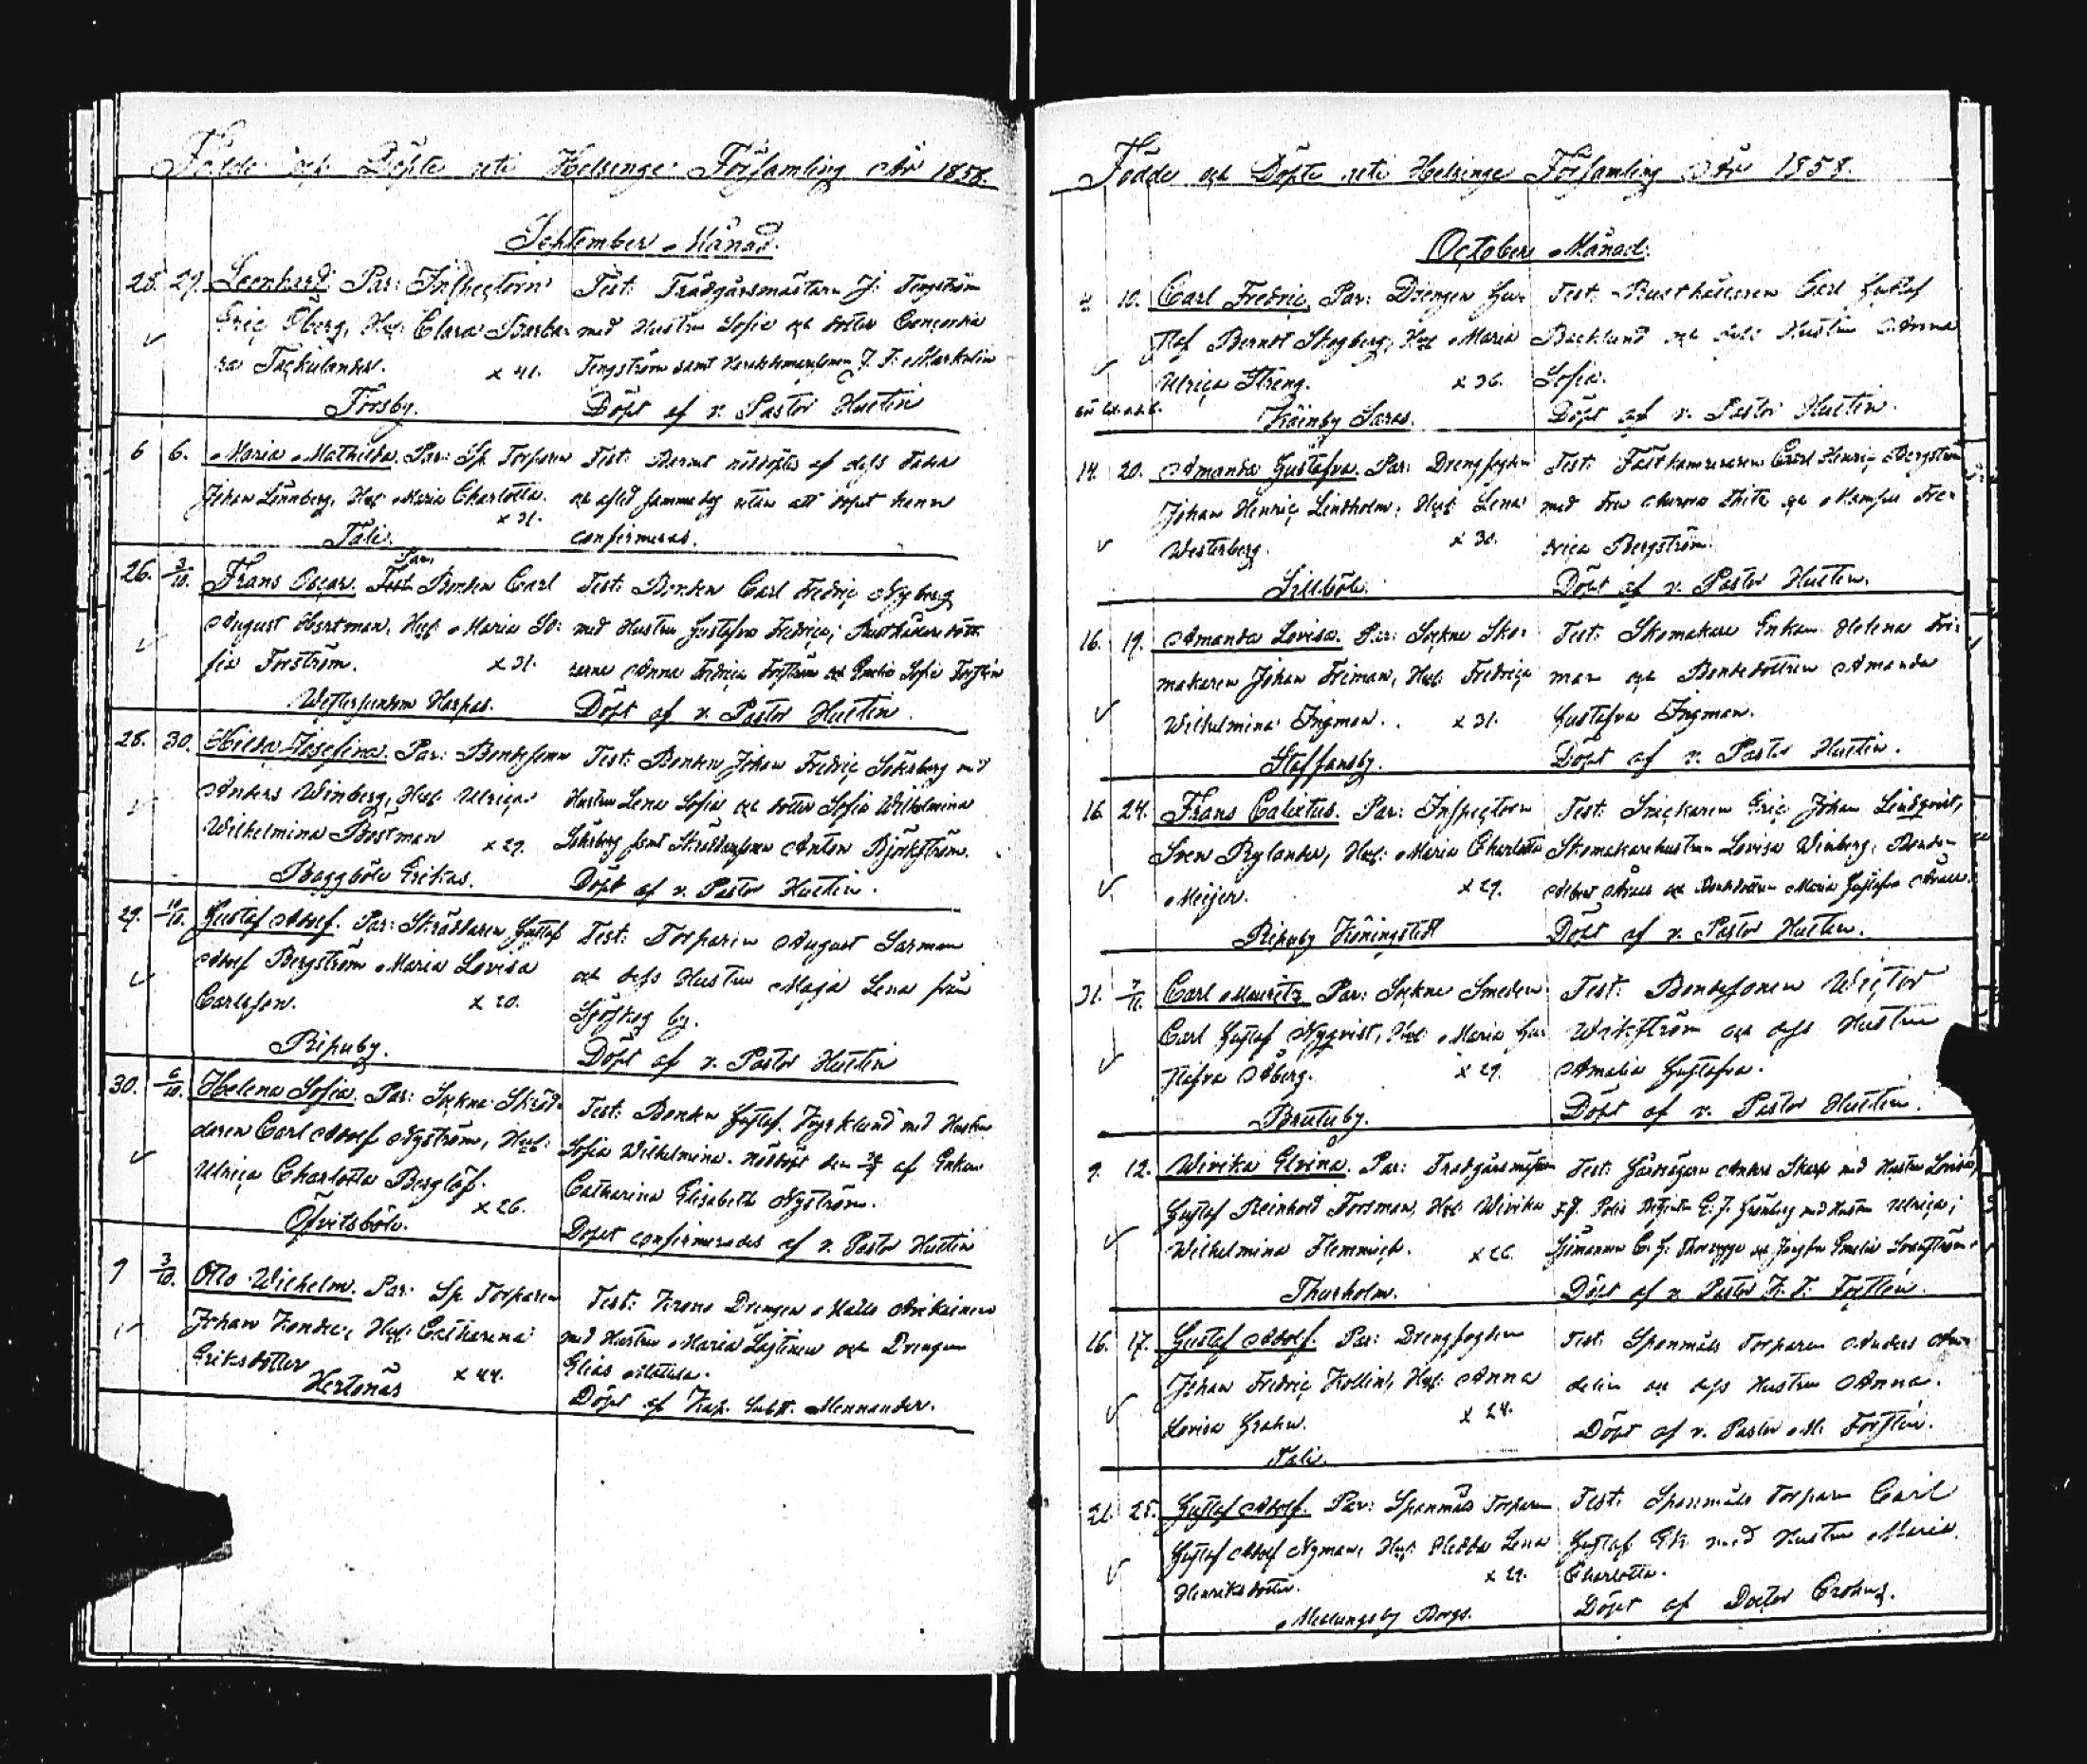 Födde och Döpte uti Helsinge Församling År 1858.
September Månad.
28. 29. Leonhard. Par: Inspectorn
Eric Öberg, Hust: Clara Barba-
ra Tackulander. x 41.
Forsby.
Test: Trädgårsmästarn J. Tengström
med Hustru Sofia och dotter Concordia
Tengström samt J. F. Markelin
Döpt af v. Pastor Hustin
6 6. Maria Mathilda. Par: Sp. Torparen
Johan Lönnberg, Hust: Maria Charlotta.
x 31.
Tali.
Test: Barnet nöddöptes af dess fader
och afled samma dag utan att dopet hann
confirmeras.
26. 3/10. Frans Oscar. Test Par: Bonden Carl
August Hartman, Hust: Maria So-
fia Forström. x 31.
Westersundom Harpas.
Test: Bonden Carl Fredric Nyberg
med Hustru Gustafva Fredrica; Rusthållaredött-
rarna Anna Fredrica Forström och Emelie Sofie Forström
Döpt af v. Pastor Hustin.
28. 30. Hilda Josefina. Par: Bondesonen
Anders Winberg, Hust: Ulrica
Wilhelmina Boström x 29.
Baggböle Erikas.
Test: Bonden Johan Fredric Söderberg med
Hustru Lena Sofia och dotter Sofia Wilhelmina
Söderberg samt Anton Björkström.
Döpt af v. Pastor Hustin.
29. 10/10. Gustaf Adolf. Par: Skräddaren Gustaf
Adolf Bergström Maria Lovisa
Carlsson. x 20.
Ripuby.
Test: Torparen August Sarman
och dess Hustru Maja Lena från
Sjöskog by.
Döpt af v. Pastor Hustin
30. 6/10. Helena Sofia. Par: Sockne Skräd-
daren Carl Adolf Nyström, Hust:
Ulrica Charlotta Berglöf.
x 26.
Öfvitsböle.
Test: Bonden Gustaf Fyrklund med Hustru
Sofia Wilhelmina. Nöddöpt den af Enkan
Catharina Elisabeth Nyström.
Dopet confirmerades af v. Pastor Hustin
9 3/10. Otto Wilhelm. Par: Sp. Torparen
Johan Hust: Catharina
Eriksdotter x 44.
Hertonäs
Test: Krono Drengen Matts
med Hustru Maria och Drengen
Elias Mattila.
Döpt af Kap. Subst. Mennander.
Födde och Döpte uti Helsinge Församling År 1858.
October Månad.
4 10. Carl Fredric, Par: Drengen Gus-
taf Berndt Skogberg, Hust: Maria
Ulrica Streng. x 36.
Käinby Saras.
Test: Rusthållaren Carl Gustaf
Backlund och dess Hustru Anna
Sofia.
Döpt af v. Pastor Hustin.
14. 20. Amanda Gustafva. Par: Drengfogden
Johan Henric Lindholm, Hust: Lena
Westerberg. x 30.
Sillböle.
Test: Fältkamreraren Carl Henric Bergström
med Fru och Mamsell Fre-
drica Bergström.
Döpt af v. Pastor Hustin.
16. 19. Amanda Lovisa. Par: Sockne Sko-
makaren Johan Friman, Hust: Fredrica
Wilhelmina Ingman. x 31.
Staffansby.
Test: Skomakare Enkan Helena Fri-
man och Bondedottren Amanda
Gustafva Ingman.
Döpt af v. Pastor Hustin.
16. 24. Frans Calixtus. Par: Inspectoren
Sven Rylander, Hust: Maria Charlotta
Meijer. x 29.
Ripuby Königstedt
Test: Snickaren Eric Johan Lindqvist,
Skomakarehustrun Lovisa Winberg, Bonden
Döpt af v. Pastor Hustin.
31. 7/11. Carl Mauritz Par: Sockne Smeden
Carl Gustaf Nyqvist, Hust: Maria Gus-
tafva Åberg. x 29.
Brutuby.
Test: Bondesonen Wictor
Wikström och dess Hustru
Amalia Gustafva.
Döpt af v. Pastor Hustin.
9. 12. Wivika Elvina. Par: Tradgårsmästarn
Gustaf Reinhold Forsman, Hust: Wivika
Wilhelmina Flemmich. x 26.
Thurholm.
Test: Gårdsägaren Anders Skarp med Hustru Lovisa,
E. J. Grönberg med Hustru Ulrica;
Sjömannen
Döpt af v. Pastor
16. 17. Gustaf Adolf. Par: Drengfogden
Johan Fredric Kollin, Hust: Anna
Lovisa Grahn. x 24.
Tali.
Test: Spanmåls Torparen Anders
och dess Hustru Anna.
Döpt af v. Pastor
21. 25. Gustaf Adolf. Par: Spanmåls Torparen
Gustaf Adolf Nyman, Hust: Hedda Lena
Henriksdotter. x 29.
Mellungsby Borgs.
Test: Spanmåls Torparn Carl
Gustaf Ek med Hustru Maria
Charlotta.
Döpt af Doctor Crohns.